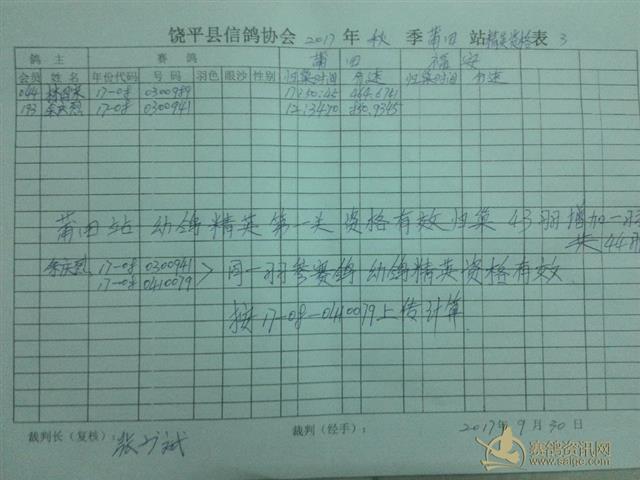 饶平县信鸽协会 2017 年 秋 季 莆田 站 精英资格 表 3
鸽主 赛鸽 莆田 福安
会员 姓名 年份代码 号码 羽色 眼沙 性别 归巢时间 分速 归巢时间 分速
044 17-08 0300989 17:50:45 464.6741
193 余庆烈 17-08 0300941 12:34:20 850.9345
莆田站 幼鸽精英第一关 资格有效归巢 43羽增加一羽
共 44羽
余庆烈 17-08 0300941 > 同一羽参赛鸽 幼鸽精英资格有效
17-08 0410079
按17-08-0410079上传计算.
裁判长（复核）： 裁判（经手）： 2017年 9 月 30 日
赛鸽资讯网
www.saige.com